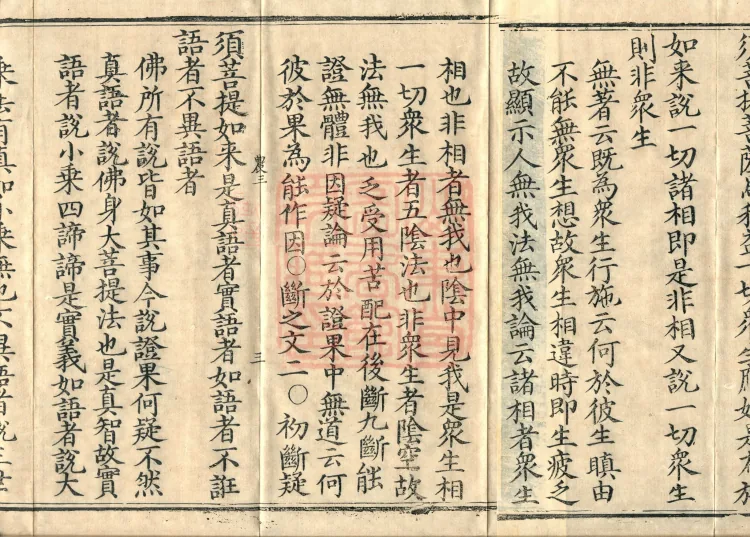 須菩提菩薩為利益一切衆生應如是布施
如来說一切諸相即是非相又說一切衆生
則非衆生
無著云既為衆生行施云何於彼生瞋由
不能無衆生想故衆生相違時即生疲乏
故顯示人無我法無我論云諸相者衆生
相也非相者無我也陰中見我是衆生相
一切衆生者五陰法也非衆生者陰空故
法無我也乏受用苦配在後斷九斷能
證無體非因疑論云於證果中無道云何
彼於果為能作因○斷之文二○初斷疑
罤三
三
須菩提如来是真語者實語者如語者不誑
語者不異語者
佛所有說皆如其事今說證果何疑不然
真語者說佛身大菩提法也是真智故實
語者說小乘四諦諦是實義如語者說大
乘法有真如小乘無也不異語者說三世